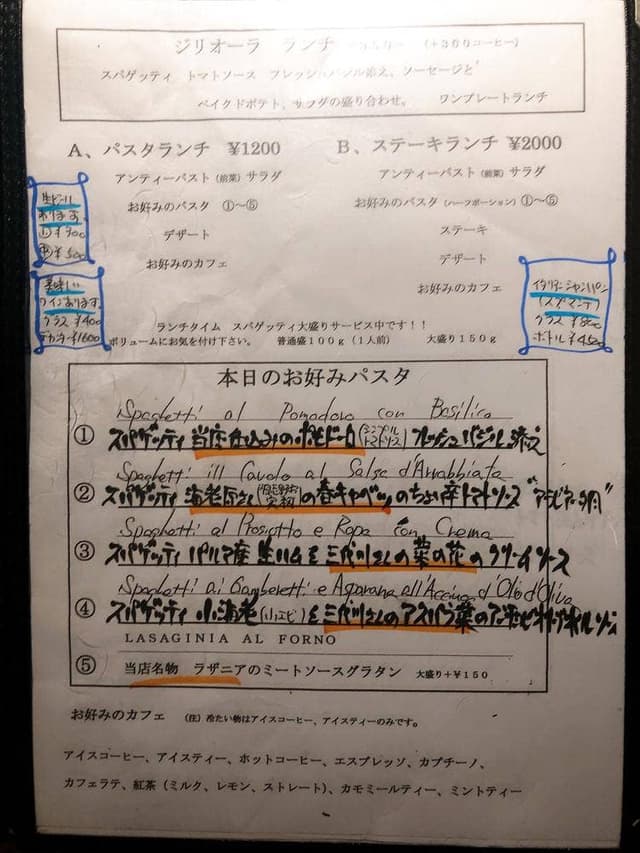 ジリオーラ ランチ (+300コーヒー)
スパゲッティ トマトソース フレッシュバジル添え、ソーセージと
ベイクドポテト、サラダの盛り合わせ。 ワンプレートランチ
A、パスタランチ ¥1200
アンティーパスト(前菜)サラダ
お好みのパスタ ①~⑤
デザート
お好みのカフェ
B、ステーキランチ ¥2000
アンティーパスト(前菜)サラダ
お好みのパスタ(ハーフポーション)①~⑤
ステーキ
デザート
お好みのカフェ
生ビール
あります
¥500
美味しい
ワインあります
グラス ¥400
デカンター¥1600
イタリアンシャンパン
(スプマンテ)
グラス ¥800
ボトル ¥4500
ランチタイム スパゲッティ大盛りサービス中です!!
ボリュームにお気を付け下さい。 普通盛100g(1人前) 大盛り150g
本日のお好みパスタ
Spaghetti al Pomodoro con Basilico
① スパゲッティ 当店仕込みのポモドーロ(シンプルトマトソース)フレッシュバジル添え
Spaghetti ill Cavolo al Salsa d'Arrabbiata
② スパゲッティ の春キャベツのちょい辛トマトソース
Spaghetti al Prosiotto e Rapa con Crema
③ スパゲッティ パルマ産 生ハムと三代川さんの菜の花のクリームソース
Spaghetti ai Gamberetti e Asparana all'Acciuga d'Olio d'Oliva
④ スパゲッティ 小海老(小エビ)と三代川さんのアスパラ菜のアンチョビオリーブオイルソース
LASAGINIA AL FORNO
⑤ 当店名物 ラザニアのミートソースグラタン 大盛り+¥150
お好みのカフェ (注)冷たい物はアイスコーヒー、アイスティーのみです。
アイスコーヒー、アイスティー、ホットコーヒー、エスプレッソ、カプチーノ、
カフェラテ、紅茶(ミルク、レモン、ストレート)、カモミールティー、ミントティー